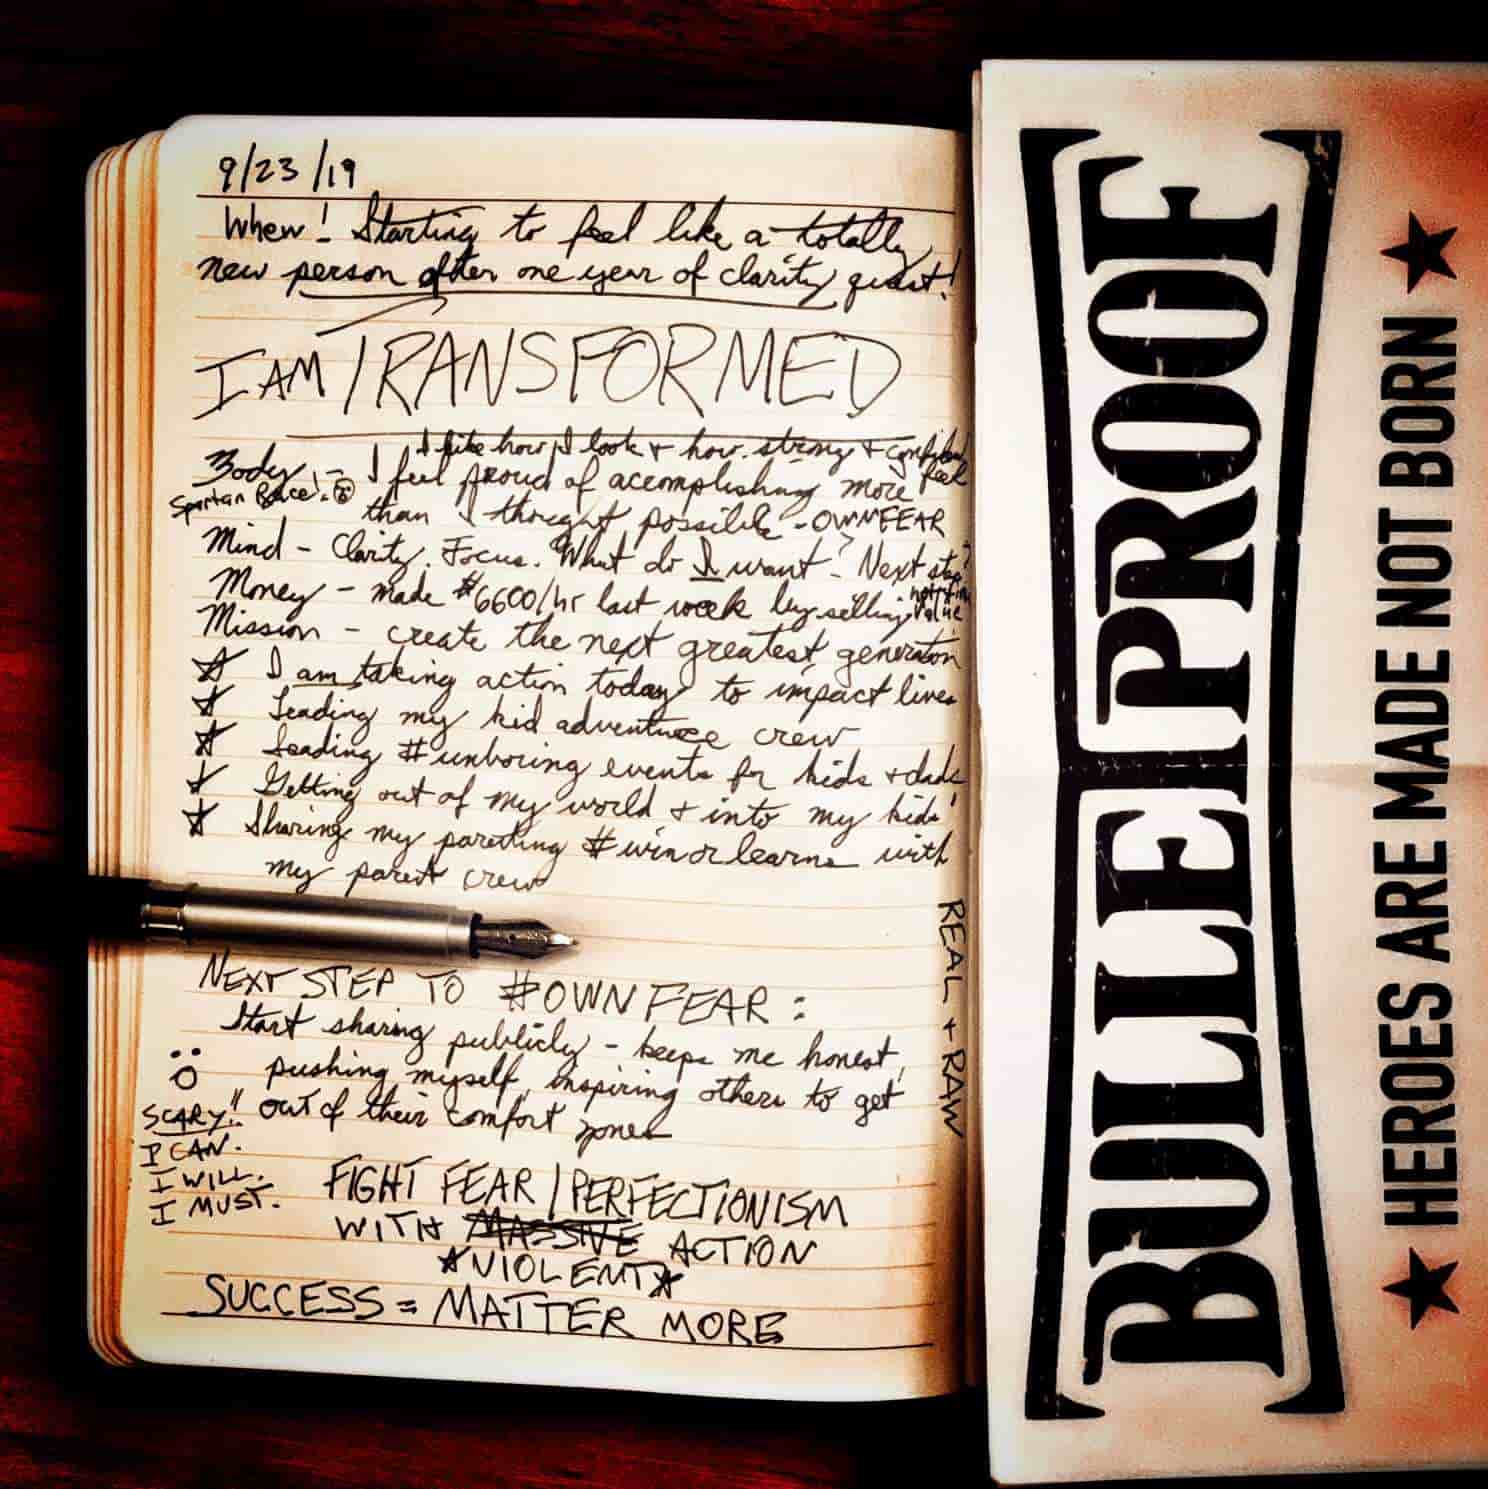 9/23/19
Whew! Starting to feel like a totally
new person after one year of clarity quest!
I AM TRANSFORMED
I like how I look + how strong + confident
Body - I feel proud of acomplishing more feel
Spartan Race!
than I thought possible - OWNFEAR
Mind - Clarity. Focus. What do I want? Next step?
Money - made $6600/hr last week by selling value
not time
Mission - create the next greatest generation
☆ I am taking action today to impact lives
☆ Leading my kid adventure crew
☆ Leading #unboring events for kids + dads
☆ Getting out of my world + into my kids'
☆ Sharing my parenting #winorlearn with
my parent crew
NEXT STEP TO #OWNFEAR:
Start sharing publicly - keeps me honest,
pushing myself, inspiring others to get
out of their comfort zones
SCARY!!
I CAN.
I WILL.
I MUST.
FIGHT FEAR / PERFECTIONISM
WITH MASSIVE ACTION
☆VIOLENT☆
SUCCESS = MATTER MORE
REAL + RAW
BULLETPROOF
★ HEROES ARE MADE NOT BORN ★